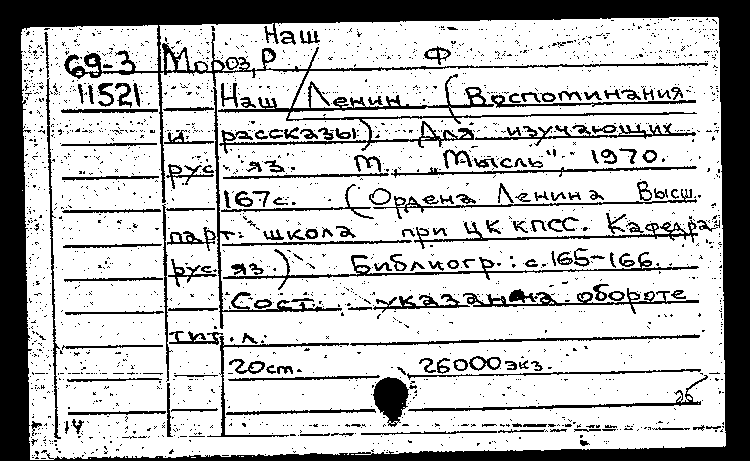 Наш
69-3 Мороз, Р. Ф
11521 Наш Ленин. (Воспоминания
и рассказы). Для изучающих
рус. яз. М., "Мысль", 1970.
167с. (Ордена Ленина Высш.
парт. школа при ЦК КПСС. Кафедра
рус. яз.) Библиогр.: с.165-166.
Сост. указан на обороте
тит. л.
20ст. 26000экз.
26
14